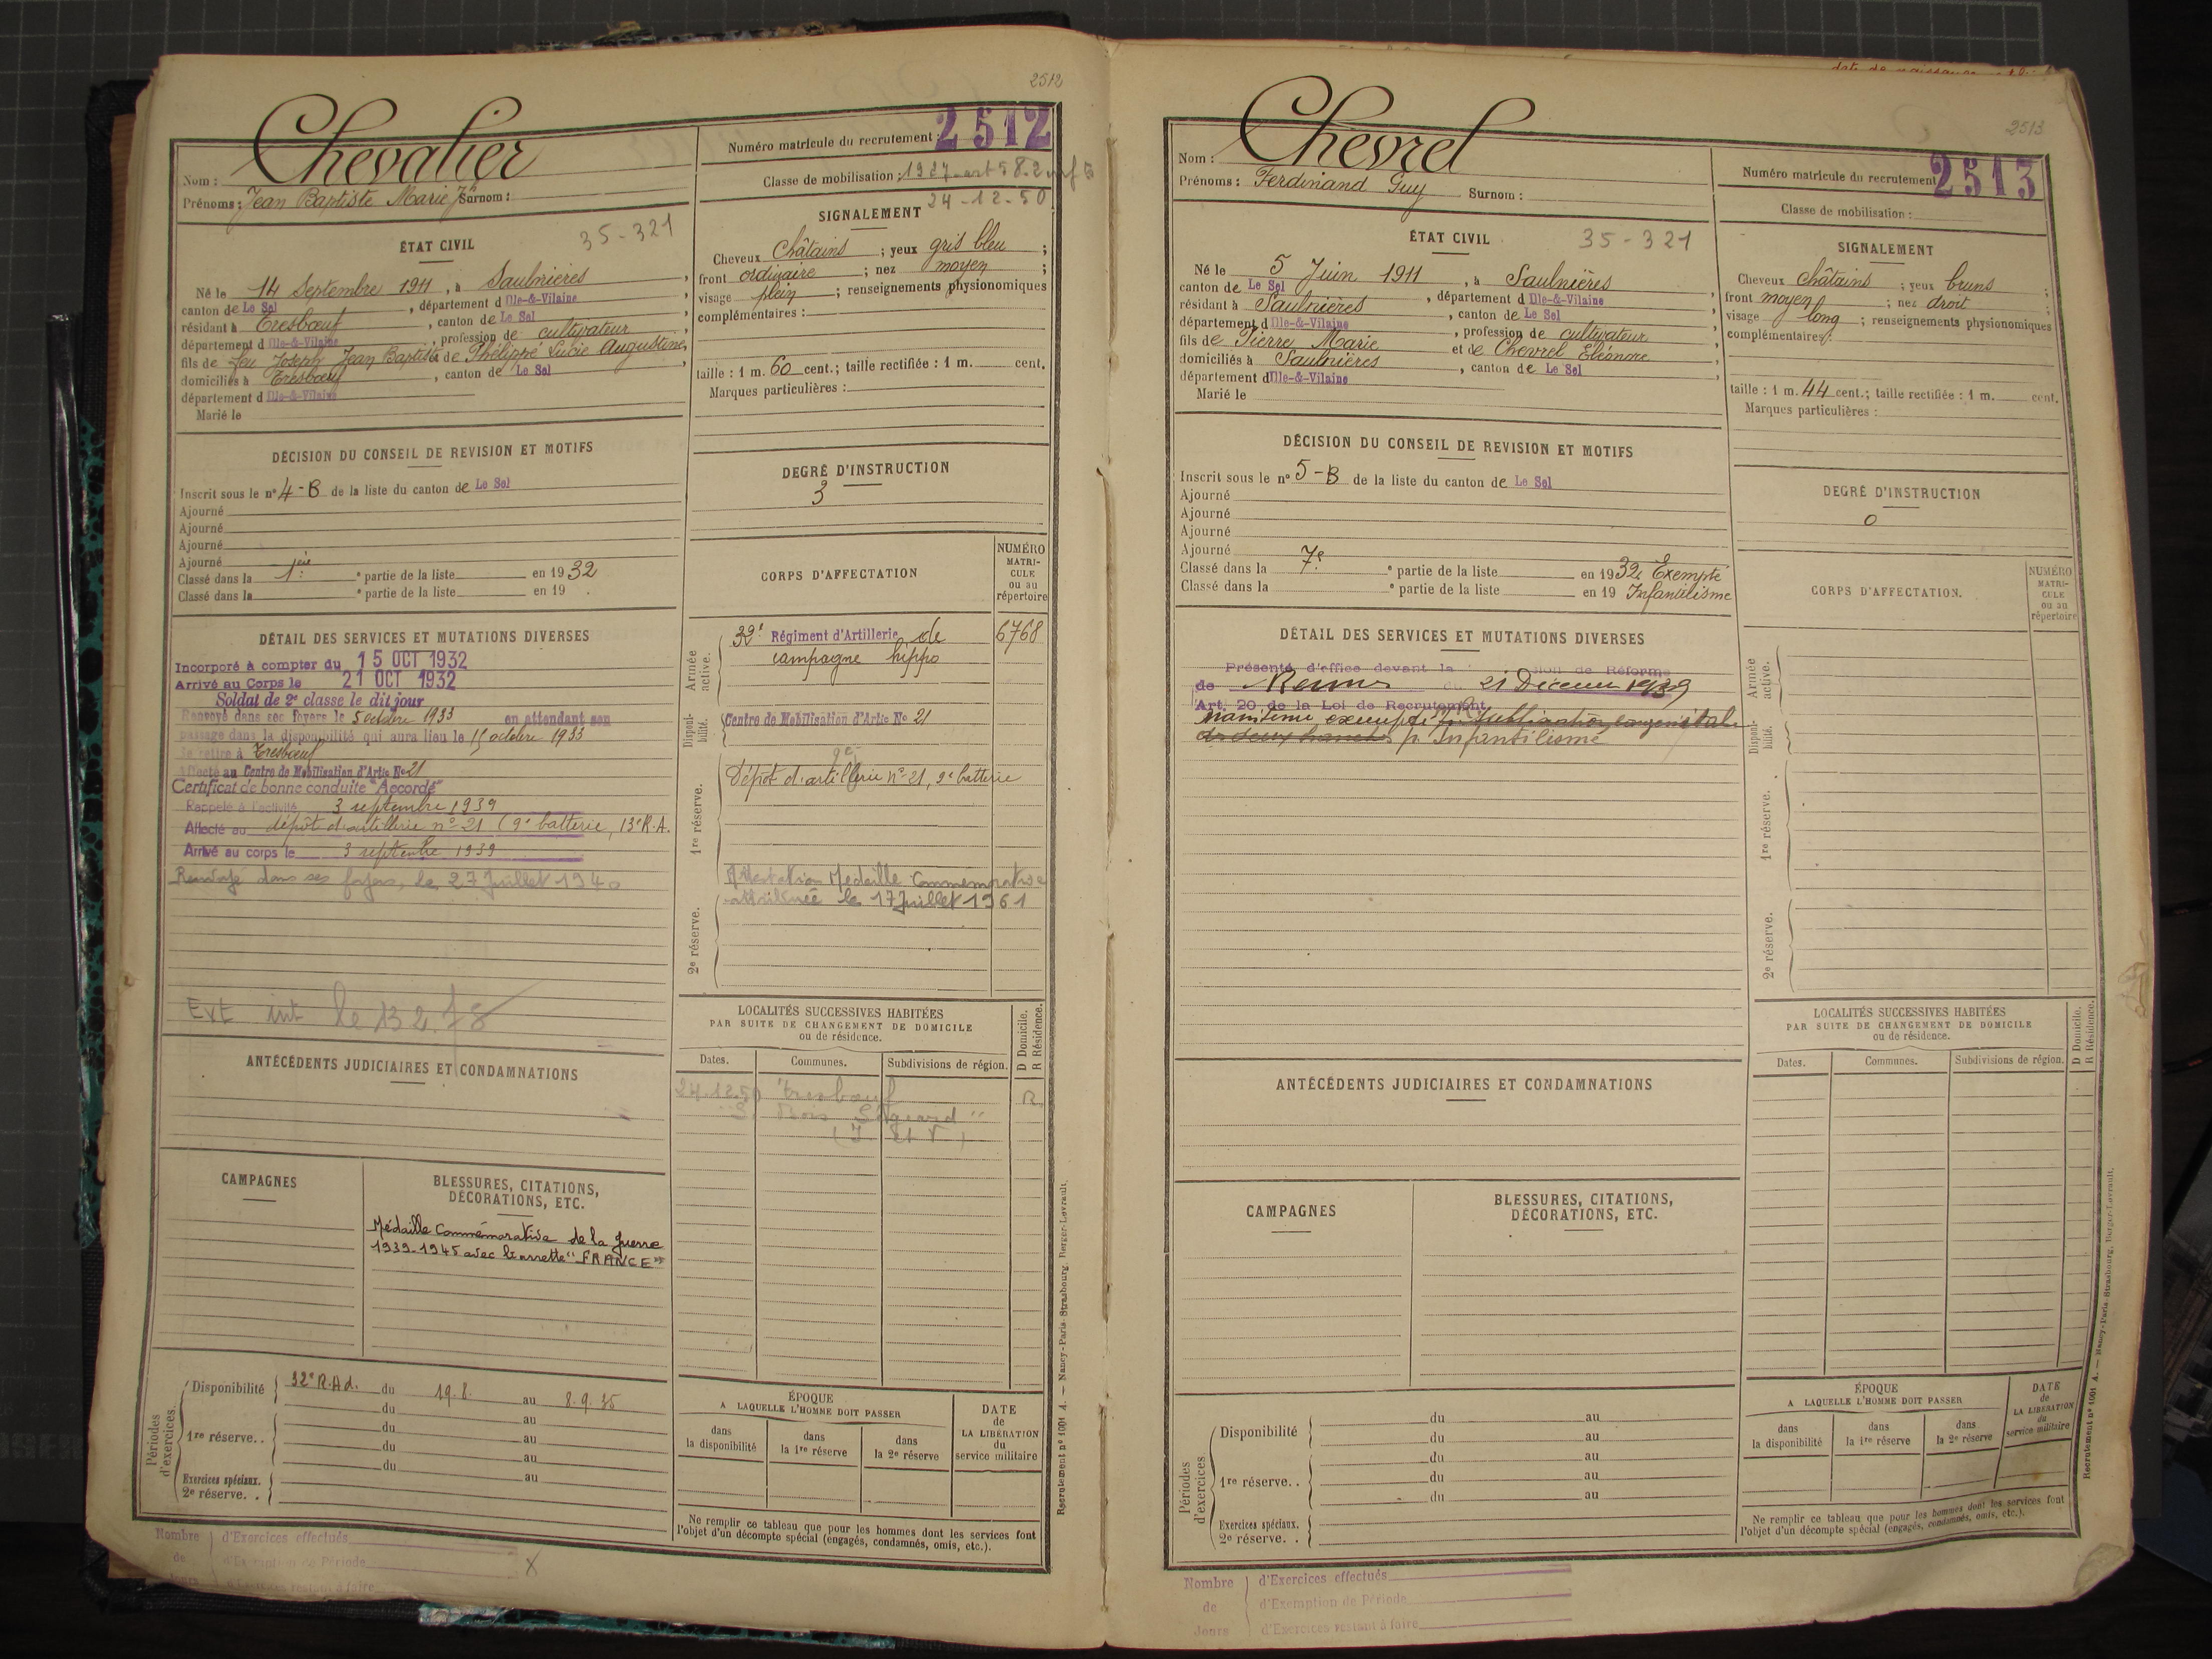 2512
Chevalier
Nom :
Prénoms : Jean Baptiste Marie Jh Surnom :
Numéro matricule du recrutement : 2512
Classe de mobilisation : 1927 art 58.2
24-12-50
35-321
ÉTAT CIVIL
Né le 14 Septembre 1911, à Saulnières,
canton de Le Sel, département d Ille-&-Vilaine,
résidant à Tresbœuf, canton de Le Sel,
département d Ille-&-Vilaine, profession de cultivateur,
fils de feu Joseph Jean Baptiste de Thélippé Lucie Augustine,
domiciliés à Tresbœuf, canton de Le Sel,
département d Ille-&-Vilaine
Marié le
SIGNALEMENT
Cheveux Châtains ; yeux gris bleu ;
front ordinaire ; nez moyen ;
visage plein ; renseignements physionomiques
complémentaires :
taille : 1 m. 60 cent.; taille rectifiée : 1 m. cent.
Marques particulières :
DÉCISION DU CONSEIL DE REVISION ET MOTIFS
Inscrit sous le n° 4-B de la liste du canton de Le Sel
Ajourné
Ajourné
Ajourné
Ajourné
Classé dans la 1ière e partie de la liste en 1932
Classé dans la e partie de la liste en 19 .
DEGRÉ D'INSTRUCTION
3
DÉTAIL DES SERVICES ET MUTATIONS DIVERSES
Incorporé à compter du 15 OCT 1932
Arrivé au Corps le 21 OCT 1932
Soldat de 2e classe le dit jour
Renvoyé dans ses foyers le 5 octobre 1933 en attendant son
passage dans la disponibilité qui aura lieu le 15 octobre 1933
Se retire à Tresbœuf
Affecté au Centre de Mobilisation d'Artie No 21
Certificat de bonne conduite "Accordé"
Rappelé à l'activité 3 septembre 1939
Affecté au dépôt d'artillerie n° 21 (9e batterie, 13e R.A.
Arrivé au corps le 3 septembre 1939
Renvoyé dans ses foyers, le 27 Juillet 1940
Ext int le 13 2.78
CORPS D'AFFECTATION
NUMÉRO
MATRI-
CULE
ou au
répertoire
Armée
active.
32e Régiment d'Artillerie de
campagne hippo
6768
Disponi-
bilité.
Centre de Mobilisation d'Artie No 21
1re réserve.
9e
Dépôt d'artillerie n° 21, 9e batterie
Attestation Medaille Commemorative
attribuée le 17 Juillet 1961
2e réserve.
LOCALITÉS SUCCESSIVES HABITÉES
PAR SUITE DE CHANGEMENT DE DOMICILE
ou de résidence.
Dates.
Communes.
Subdivisions de région.
D Domicile.
R Résidence.
24.12.50 Tresbœuf R
(I et V)
ANTÉCÉDENTS JUDICIAIRES ET CONDAMNATIONS
CAMPAGNES
BLESSURES, CITATIONS,
DÉCORATIONS, ETC.
Médaille Commémorative de la guerre
1939-1945 avec barrette "FRANCE"
Périodes
d'exercices.
Disponibilité 32e R.Ad. du 19.8. au 8.9.35
du au
1re réserve.. du au
du au
du au
Exercices spéciaux.
2e réserve. .
ÉPOQUE
A LAQUELLE L'HOMME DOIT PASSER
dans
la disponibilité
dans
la 1re réserve
dans
la 2e réserve
DATE
de
LA LIBÉRATION
du
service militaire
Ne remplir ce tableau que pour les hommes dont les services font
l'objet d'un décompte spécial (engagés, condamnés, omis, etc.).
Recrutement n° 1001 A. — Nancy-Paris-Strasbourg, Berger-Levrault.
Nombre
de
Jours
d'Exercices effectués
d'Exemption de Période
d'Exercices restant à faire
X
date de naissance
2513
Chevrel
Nom :
Prénoms : Ferdinand Guy Surnom :
Numéro matricule du recrutement 2513
Classe de mobilisation :
35-321
ÉTAT CIVIL
Né le 5 Juin 1911, à Saulnières
canton de Le Sel, département d Ille-&-Vilaine,
résidant à Saulnières, canton de Le Sel,
département d Ille-&-Vilaine, profession de cultivateur,
fils de Pierre Marie et de Chevrel Eléonore
domiciliés à Saulnières, canton de Le Sel,
département d Ille-&-Vilaine
Marié le
SIGNALEMENT
Cheveux châtains ; yeux bruns ;
front moyen ; nez droit ;
visage long ; renseignements physionomiques
complémentaires :
taille : 1 m. 44 cent.; taille rectifiée : 1 m. cent.
Marques particulières :
DÉCISION DU CONSEIL DE REVISION ET MOTIFS
Inscrit sous le n° 5-B de la liste du canton de Le Sel
Ajourné
Ajourné
Ajourné
Ajourné
Classé dans la 7e e partie de la liste en 1932 Exempté
Classé dans la e partie de la liste en 19 Infantilisme
DEGRÉ D'INSTRUCTION
0
DÉTAIL DES SERVICES ET MUTATIONS DIVERSES
Présenté d'office devant la de Réforme
de Rennes 21 Décembre 1939
Art. 20 de la Loi de Recrutement
Maintenu exempté subluxation congénitale
des deux hanches p. Infantilisme
CORPS D'AFFECTATION.
NUMÉRO
MATRI-
CULE
ou au
répertoire
Armée
active.
Disponi-
bilité.
1re réserve.
2e réserve.
LOCALITÉS SUCCESSIVES HABITÉES
PAR SUITE DE CHANGEMENT DE DOMICILE
ou de résidence.
Dates.
Communes.
Subdivisions de région.
D Domicile.
R Résidence.
ANTÉCÉDENTS JUDICIAIRES ET CONDAMNATIONS
CAMPAGNES
BLESSURES, CITATIONS,
DÉCORATIONS, ETC.
Périodes
d'exercices
Disponibilité du au
du au
1re réserve.. du au
du au
du au
Exercices spéciaux.
2e réserve. .
ÉPOQUE
A LAQUELLE L'HOMME DOIT PASSER
dans
la disponibilité
dans
la 1re réserve
dans
la 2e réserve
DATE
de
LA LIBÉRATION
du
service militaire
Ne remplir ce tableau que pour les hommes dont les services font
l'objet d'un décompte spécial (engagés, condamnés, omis, etc.).
Recrutement n° 1001 A. — Nancy-Paris-Strasbourg, Berger-Levrault.
Nombre
de
Jours
d'Exercices effectués
d'Exemption de Période
d'Exercices restant à faire